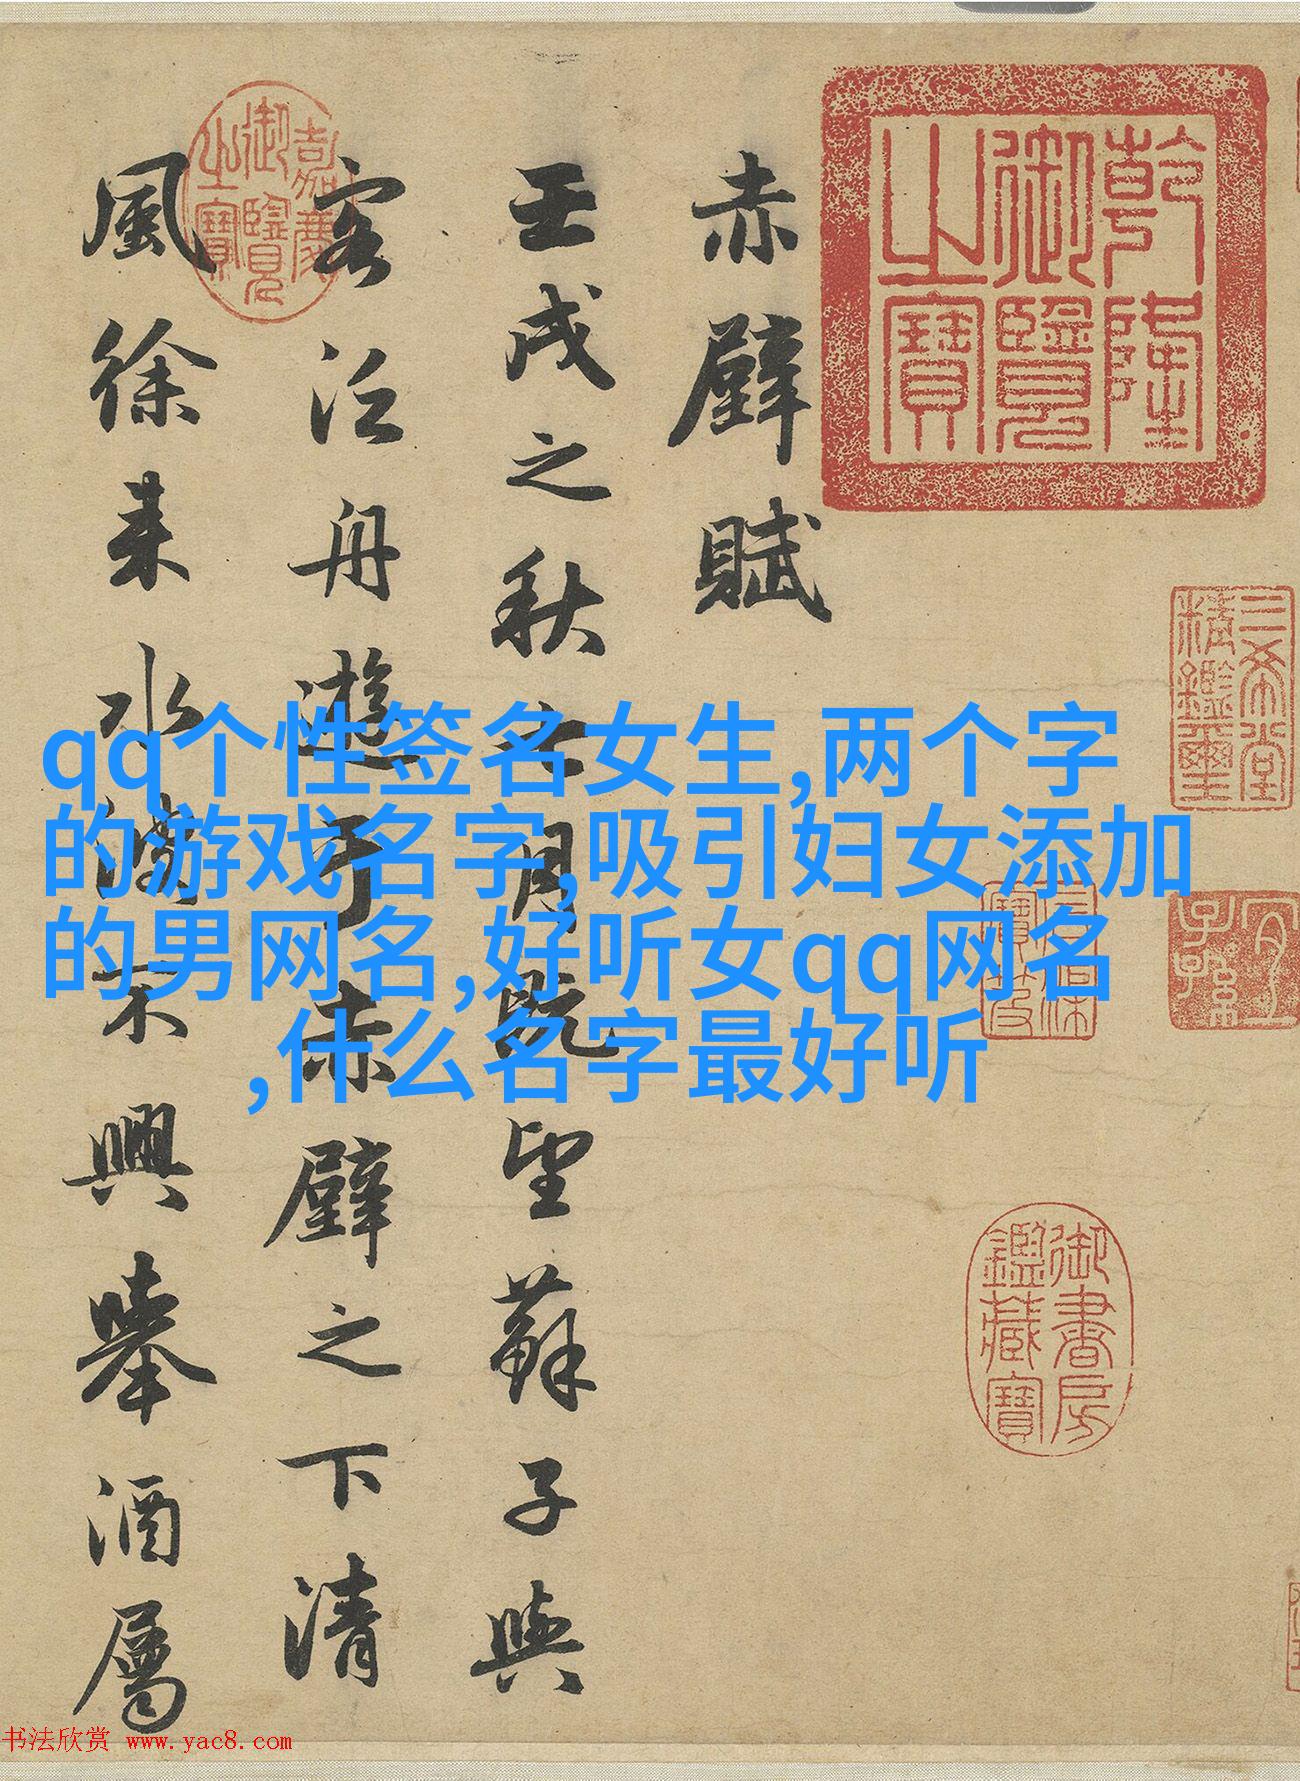 乾隆
御覽
之寶
三希堂
精鑑璽
宜
子孫
石渠
寶笈
御書房
鑑藏寶
赤壁賦
壬戌之秋七月既望蘇子與
客泛舟遊于赤壁之下清
風徐来水波不興舉酒屬
嘉慶
御覽
之寶
qq个性签名女生,两个字
的游戏名字,吸引妇女添加
的男网名,好听女qq网名
,什么名字最好听
书法欣赏 www.yac8.com